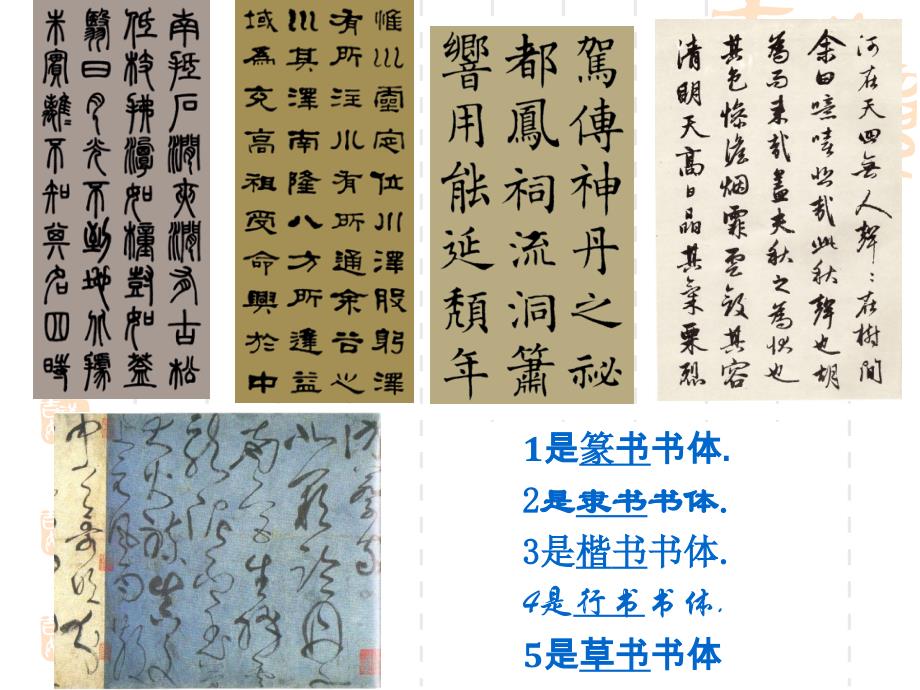 南抵石澗夾澗有古松
低枝拂潭如幢豎如蓋
翳日月光不到地北據
朱實離〻不知其名四時
惟川靈定位川澤股躬澤
有所注小有所通余谷心
川其澤南隆八方所達益
域為充高祖受命興於中
駕傳神丹之祕
都鳳祠流洞簫
響用能延頹年
河在天四無人聲〻在樹間
余曰噫嘻悲哉此秋聲也胡
為而來哉蓋夫秋之為狀也
其色慘澹烟霏雲斂其容
清明天高日晶其氣栗烈
1是篆书书体.
2是隶书书体.
3是楷书书体.
4是行书书体.
5是草书书体